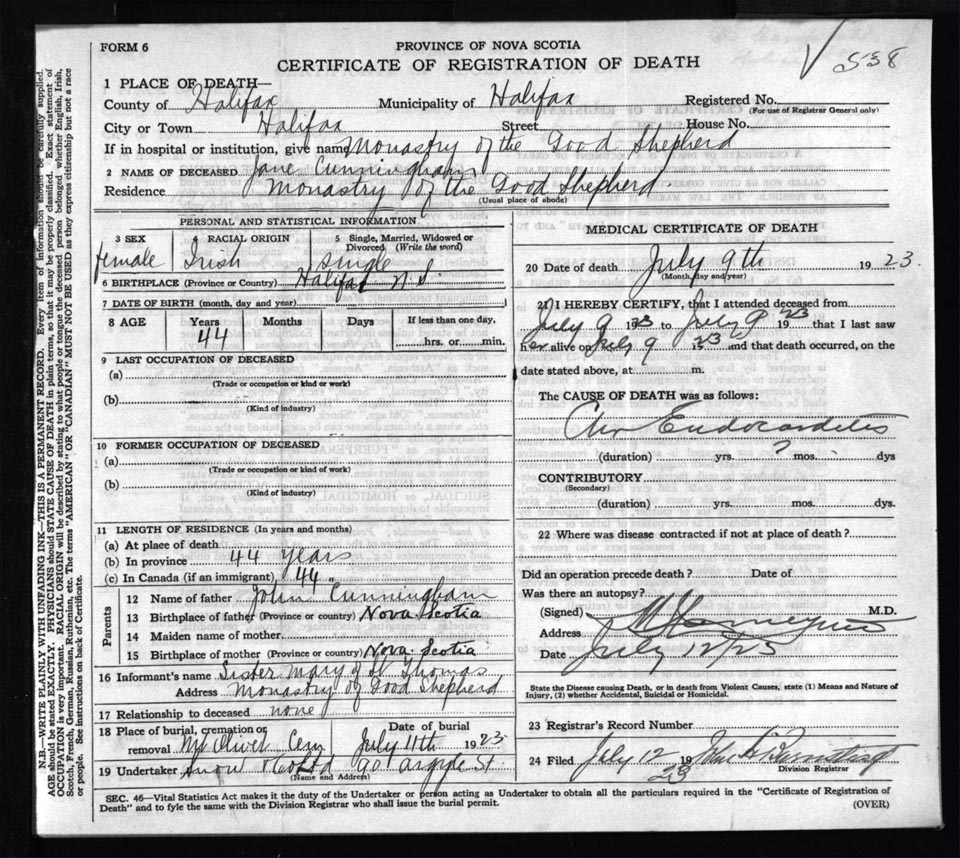 FORM 6
PROVINCE OF NOVA SCOTIA
CERTIFICATE OF REGISTRATION OF DEATH
538
1 PLACE OF DEATH—
County of Halifax Municipality of Halifax Registered No.
(For use of Registrar General only)
City or Town Halifax Street House No.
If in hospital or institution, give name Monastry of the Good Shepherd
2 NAME OF DECEASED Jane Cunningham
Residence Monastry of the Good Shepherd
(Usual place of abode)
PERSONAL AND STATISTICAL INFORMATION
3 SEX 4 RACIAL ORIGIN 5 Single, Married, Widowed or Divorced (Write the word)
female Irish single
6 BIRTHPLACE (Province or Country) Halifax N.S.
7 DATE OF BIRTH (month, day and year)
8 AGE Years Months Days If less than one day,
44 hrs. or min.
9 LAST OCCUPATION OF DECEASED
(a)
(Trade or occupation or kind or work)
(b)
(Kind of industry)
10 FORMER OCCUPATION OF DECEASED
(a)
(Trade or occupation or kind or work)
(b)
(Kind of industry)
11 LENGTH OF RESIDENCE (In years and months)
(a) At place of death
(b) In province 44 years
(c) In Canada (if an immigrant) 44 "
Parents
12 Name of father John Cunningham
13 Birthplace of father (Province or country) Nova Scotia
14 Maiden name of mother
15 Birthplace of mother (Province or country) Nova Scotia
16 Informant's name Sister Mary of St Thomas
Address Monastry of Good Shepherd
17 Relationship to deceased none
18 Place of burial, cremation or removal Mt Olivet Cem
Date of burial July 11th 1923
19 Undertaker Snow & Co Ltd 90 Argyle St
(Name and Address)
MEDICAL CERTIFICATE OF DEATH
20 Date of death July 9th 1923.
(Month, day and year)
21 I HEREBY CERTIFY, that I attended deceased from
July 9 1923 to July 9 1923 that I last saw
her alive on July 9 1923 and that death occurred, on the
date stated above, at m.
The CAUSE OF DEATH was as follows:
Chr Endocarditis
(duration) yrs. ? mos. dys
CONTRIBUTORY
(Secondary)
(duration) yrs. mos. dys.
22 Where was disease contracted if not at place of death?
Did an operation precede death? Date of
Was there an autopsy?
(Signed) M.D.
Address
Date July 12/23
State the Disease causing Death, or in death from Violent Causes, state (1) Means and Nature of
Injury, (2) whether Accidental, Suicidal or Homicidal.
23 Registrar's Record Number
24 Filed July 12 1923 John
Division Registrar
SEC. 46—Vital Statistics Act makes it the duty of the Undertaker or person acting as Undertaker to obtain all the particulars required in the "Certificate of Registration of
Death" and to fyle the same with the Division Registrar who shall issue the burial permit.
(OVER)
N.B.—WRITE PLAINLY WITH UNFADING INK—THIS IS A PERMANENT RECORD. Every item of information should be carefully supplied.
AGE should be stated EXACTLY. PHYSICIANS should STATE CAUSE OF DEATH in plain terms, so that it may be properly classified. Exact statement of
OCCUPATION is very important. RACIAL ORIGIN will be described by stating to what people or tongue the deceased person belonged whether English, Irish,
Scotch, French, German, Russian, Ruthenian, etc. The terms "AMERICAN" or "CANADIAN" MUST NOT BE USED as they express citizenship but not a race
or people. See instructions on back of Certificate.